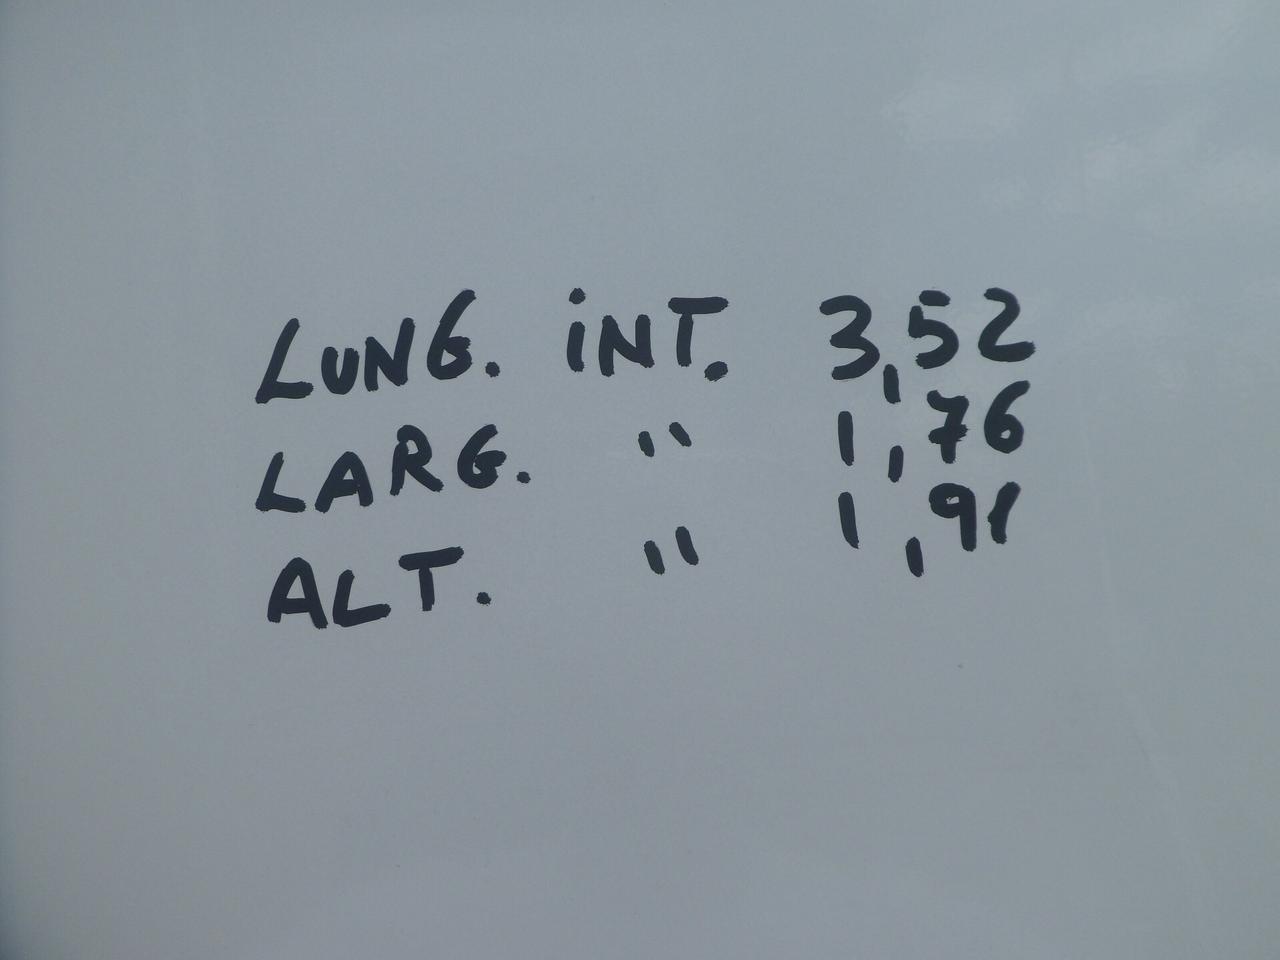 LUNG. iNT. 3,52
LARG. " 1,76
ALT. " 1,91